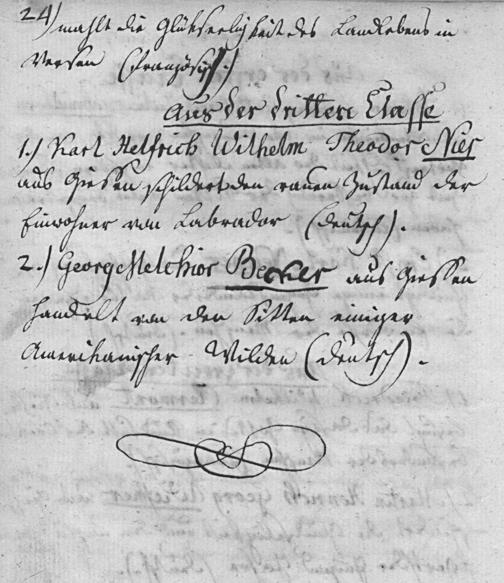 24) mahlt die Glükseeligkeit des Landlebens in
Versen (französisch.)
Aus der dritten Classe
1.) Karl Helfrich Wilhelm Theodor Nies
aus Giessen schildert den rauen Zustand der
Einwohner von Labrador (deutsch).
2.) George Melchior Becker aus Giessen
handelt von den Sitten einiger
Amerikanischer Wilden (deutsch).